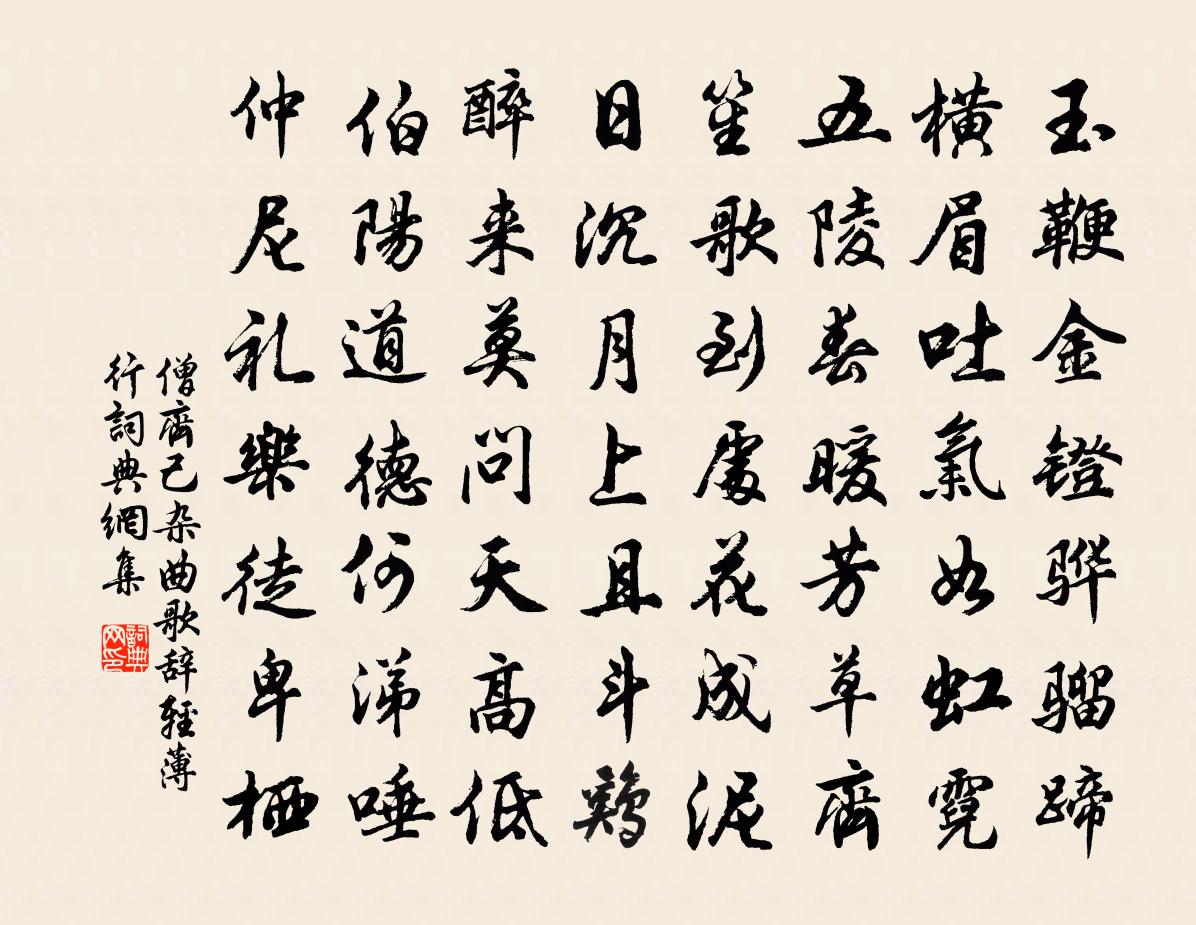 玉鞭金镫骅骝蹄
横眉吐氣如虹霓
五陵春暖芳草齊
笙歌到處花成泥
日沉月上且斗鷄
醉来莫問天高低
伯陽道德何涕唾
仲尼礼樂徒卑栖
僧齊己杂曲歌辞輕薄
行詞典網集
詞典
网印